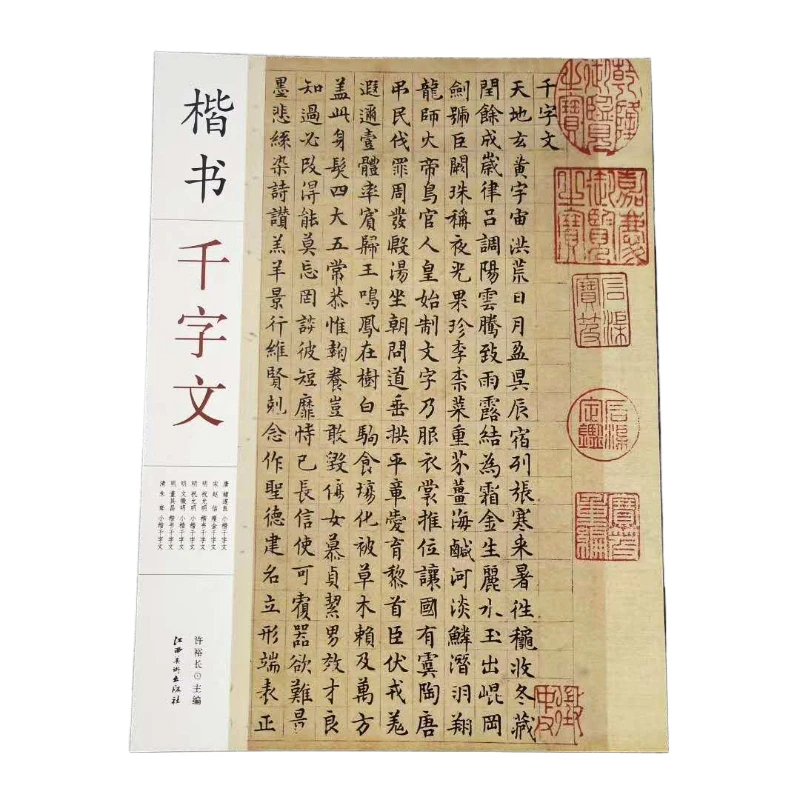 楷书
千字文
唐 褚遂良 小楷千字文
宋 赵佶 瘦金千字文
明 祝允明 楷书千字文
明 祝允明 小楷千字文
明 文徵明 小楷千字文
明 董其昌 楷书千字文
清 朱耷 小楷千字文
许裕长⊙主编
江西美术出版社
千字文
天地玄黄宇宙洪荒日月盈昃辰宿列張寒来暑往穐收冬藏
閏餘成歲律吕調陽雲騰致雨露結為霜金生麗水玉出崐岡
劍號巨闕珠稱夜光果珍李柰菜重芥薑海鹹河淡鱗潛羽翔
龍師火帝鳥官人皇始制文字乃服衣裳推位讓國有虞陶唐
弔民伐罪周發殷湯坐朝問道垂拱平章愛育黎首臣伏戎羌
遐邇壹體率賓歸王鳴鳳在樹白駒食場化被草木賴及萬方
盖此身髮四大五常恭惟鞠養豈敢毀傷女慕貞潔男效才良
知過必改得能莫忘罔談彼短靡恃己長信使可覆器欲難量
墨悲絲染詩讚羔羊景行維賢剋念作聖德建名立形端表正
乾隆御覽之寶
嘉慶御覽之寶